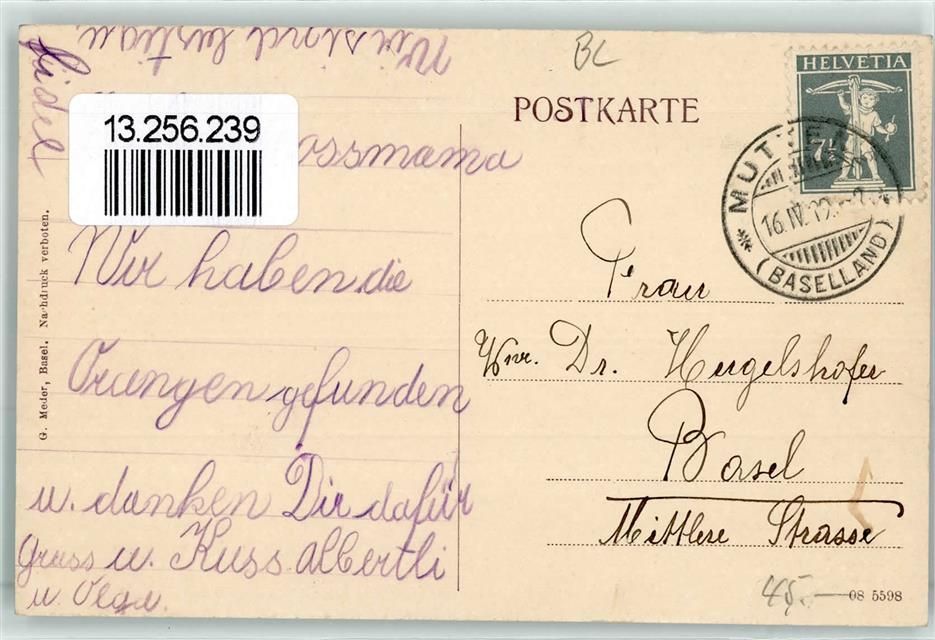 Wir sind lustig u.
fidel
13.256.239
ossmama
Wir haben die
Orangen gefunden
u. danken Dir dafür
Gruss u. Kuss Albertli
u. Olga.
G. Meder, Basel. Nachdruck verboten.
BL
POSTKARTE
HELVETIA
7½
MUTTENZ
16.IV.09.
(BASELLAND)
Frau
Wwe. Dr. Hugelshofer
Basel
Mittlere Strasse
45.-
08 5598